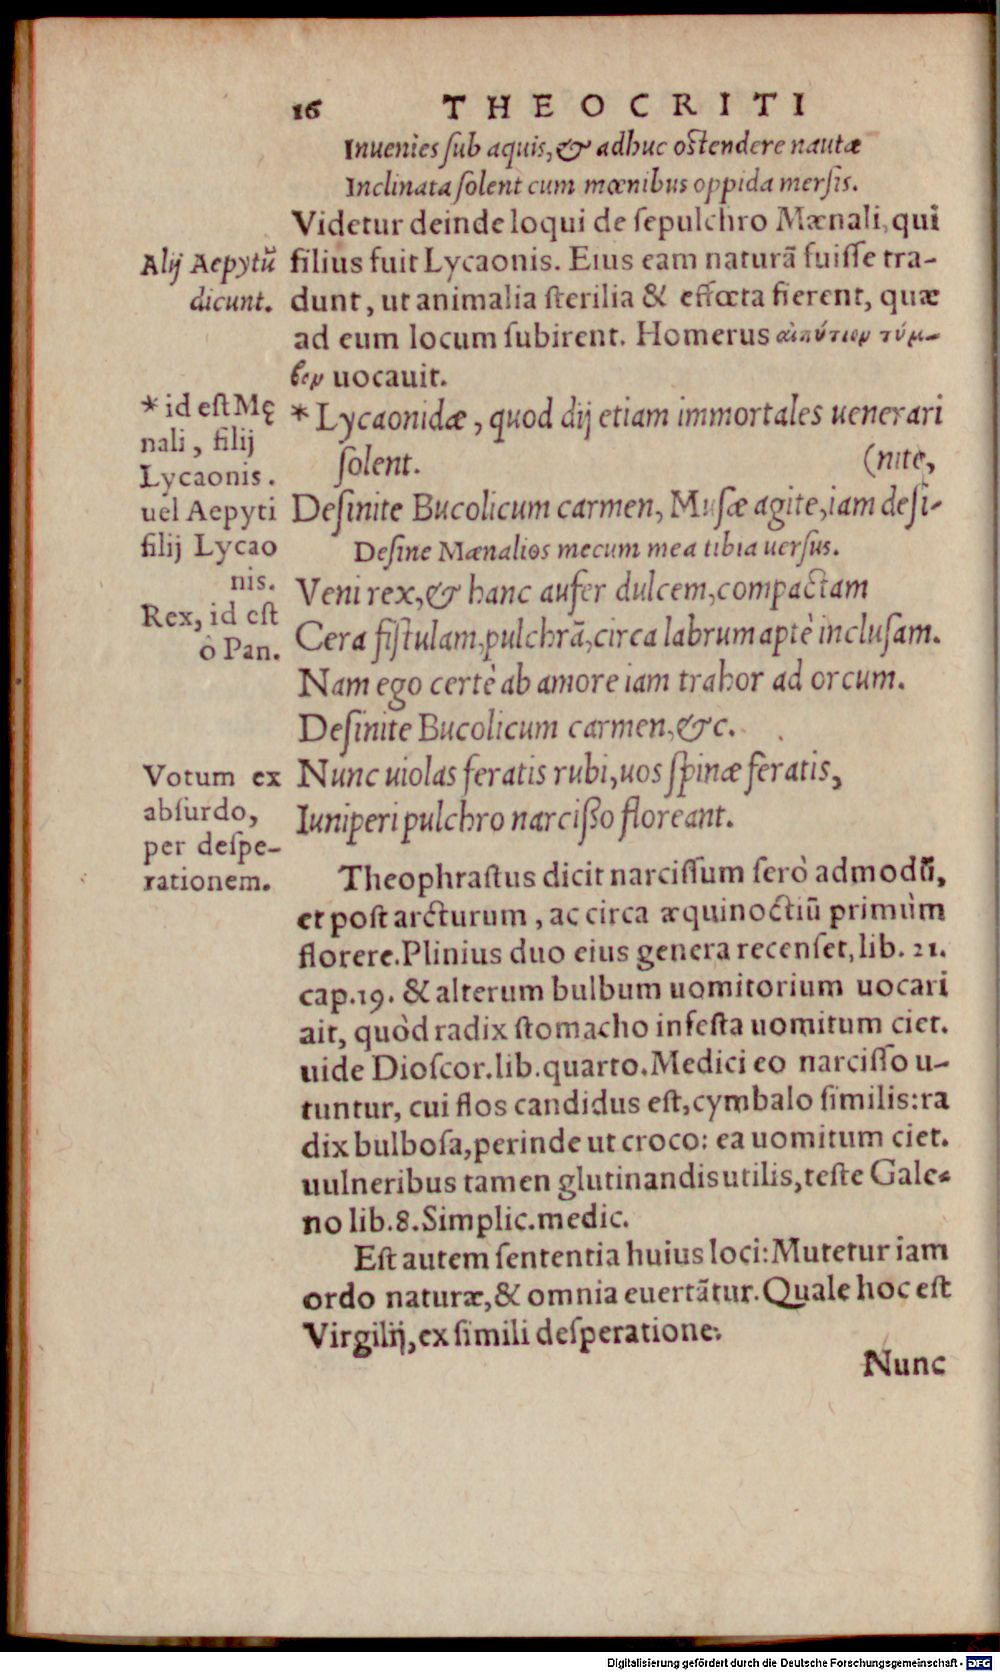 16 THEOCRITI
Inuenies sub aquis, & adhuc ostendere nautæ
Inclinata solent cum mœnibus oppida mersis.
Videtur deinde loqui de sepulchro Mænali, qui
filius fuit Lycaonis. Eius eam naturā fuisse tra-
dunt, ut animalia sterilia & effœta fierent, quæ
ad eum locum subirent. Homerus αἰπύτιον τύμ-
βον uocauit.
Alij Aepytū
dicunt.
* Lycaonidæ, quod dij etiam immortales uenerari
solent. (nite,
Desinite Bucolicum carmen, Musæ agite, iam desi-
Desine Mænalios mecum mea tibia uersus.
* id est Mę
nali, filij
Lycaonis.
uel Aepyti
filij Lycao
nis.
Veni rex, & hanc aufer dulcem, compactam
Cera fistulam, pulchrā, circa labrum aptè inclusam.
Nam ego certè ab amore iam trahor ad orcum.
Desinite Bucolicum carmen, &c.
Rex, id est
ô Pan.
Nunc uiolas feratis rubi, uos spinæ feratis,
Iuniperi pulchro narcisso floreant.
Votum ex
absurdo,
per despe-
rationem.
Theophrastus dicit narcissum serò admodū,
et post arcturum, ac circa æquinoctiū primùm
florere. Plinius duo eius genera recenset, lib. 21.
cap. 19. & alterum bulbum uomitorium uocari
ait, quòd radix stomacho infesta uomitum ciet.
uide Dioscor. lib. quarto. Medici eo narcisso u-
tuntur, cui flos candidus est, cymbalo similis: ra
dix bulbosa, perinde ut croco: ea uomitum ciet.
uulneribus tamen glutinandis utilis, teste Gale-
no lib. 8. Simplic. medic.
Est autem sententia huius loci: Mutetur iam
ordo naturæ, & omnia euertātur. Quale hoc est
Virgilij, ex simili desperatione.
Nunc
Digitalisierung gefördert durch die Deutsche Forschungsgemeinschaft - DFG